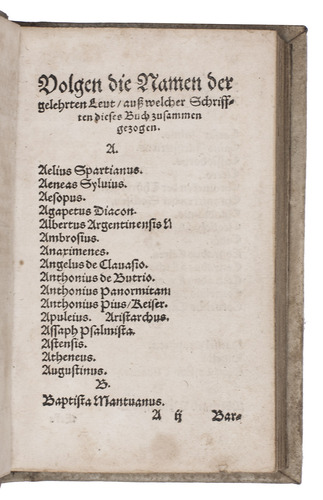 Volgen die Namen der
gelehrten Leut / auß welcher Schriff-
ten dieses Buch zusammen
gezogen.
A.
Aelius Spartianus.
Aeneas Sylvius.
Aesopus.
Agapetus Diacon.
Albertus Argentinensis
Ambrosius.
Anaximenes.
Angelus de Clauasio.
Anthonius de Butrio.
Anthonius Panormitan
Anthonius Pius / Keiser.
Apuleius. Aristarchus.
Assaph Psalmista.
Astensis.
Atheneus.
Augustinus.
B.
Baptista Mantuanus.
A ij Bar-